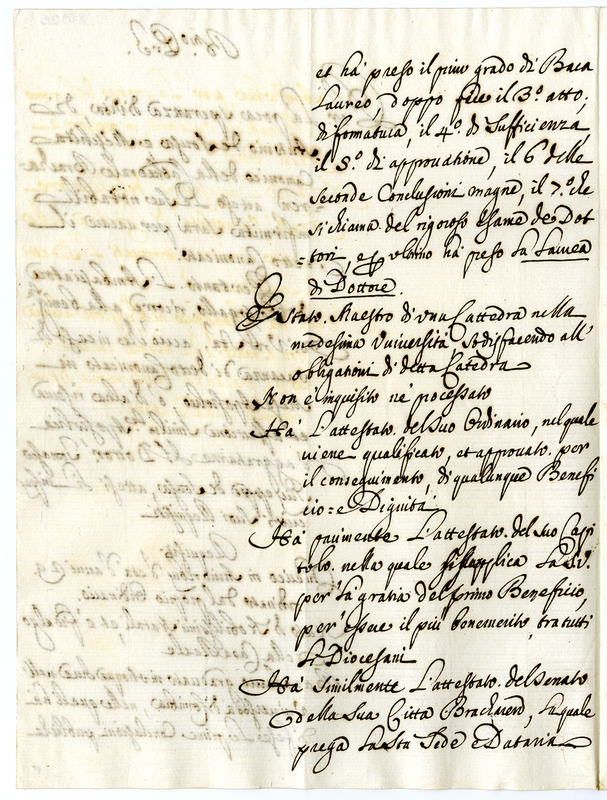 et ha' preso il primo grado di' Baca
Laureo, doppo fece il 3.º atto,
di formatura, il 4.º di Sufficienza,
il 5.º di approvatione, il 6 delle
seconde Conclusioni magne, il 7.º che
si chiama del rigoroso esame de Dot
=tori, e ultimo ha' preso la Laurea
di Dottore.
E' stato Maestro di una Cattedra nella
medesima Vniversità sodisfacendo all'
obligationi di detta Catedra
Non è inquisito nè processato
Hà l'attestato del suo Ordinario, nel quale
viene qualificato, et approvato per
il conseguimento, di qualunque Benefi
cio: e Dignità
Hà parimente l'attestato del suo Capi
tolo nella quale supplica la
per la gratia del primo Beneficio,
per essere il più benemerito, tra tutti
li Diocesani
Hà similmente l'attestato del Senato
della sua Città la quale
prega la Sta Sede e Dataria